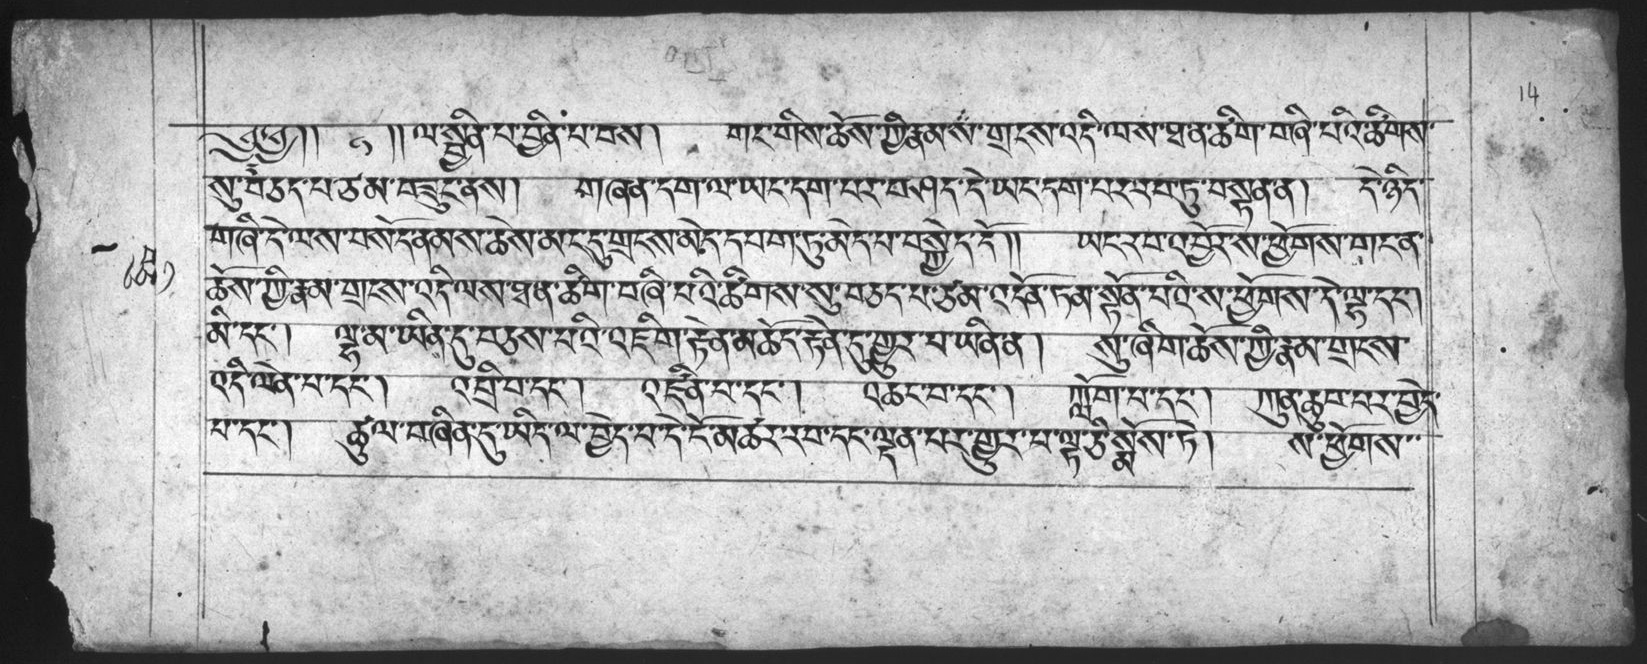 ༄༅།། ༡ །།ལ་སྦྱིན་པ་བྱིན་པ་བས། གང་གིས་ཆོས་ཀྱི་རྣམས་གྲངས་འདི་ལས་ཐ་ན་ཚིག་བཞི་པའི་ཚིགས་
སུ་བཅད་པ་ཙམ་བཟུང་ནས། གཞན་དག་ལ་ཡང་དག་པར་བཤད་དེ་ཡང་དག་པར་རབ་ཏུ་བསྟན་ན། དེ་ཉིད་
གཞི་དེ་ལས་བསོད་ནམས་ཆེས་མང་དུ་གྲངས་མེད་དཔག་ཏུ་མེད་པ་བསྐྱེད་དོ།། ཡང་རབ་འབྱོར་ས་ཕྱོགས་གང་ན་
ཆོས་ཀྱི་རྣམ་གྲངས་འདི་ལས་ཐ་ན་ཚིག་བཞི་པའི་ཚིགས་སུ་བཅད་པ་ཙམ་འདོན་ཏམ་སྟོན་པའི་ས་ཕྱོགས་དེ་ལྷ་དང་།
མི་དང་། ལྷ་མ་ཡིན་དུ་བཅས་པའི་འཇིག་རྟེན་མཆོད་རྟེན་དུ་གྱུར་པ་ཡིན་ན། སུ་ཞིག་ཆོས་ཀྱི་རྣམ་གྲངས་
འདི་ལེན་པ་དང་། འབྲི་བ་དང་། འཛིན་པ་དང་། འཆང་བ་དང་། ཀློག་པ་དང་། ཀུན་ཆུབ་པར་བྱེད་
པ་དང་། ཚུལ་བཞིན་དུ་ཡིད་ལ་བྱེད་པ་དེ་ངོ་མཚར་རབ་དང་ལྡན་པར་གྱུར་པ་ལྟ་ཅི་སྨོས་ཏེ། ས་ཕྱོགས་
14